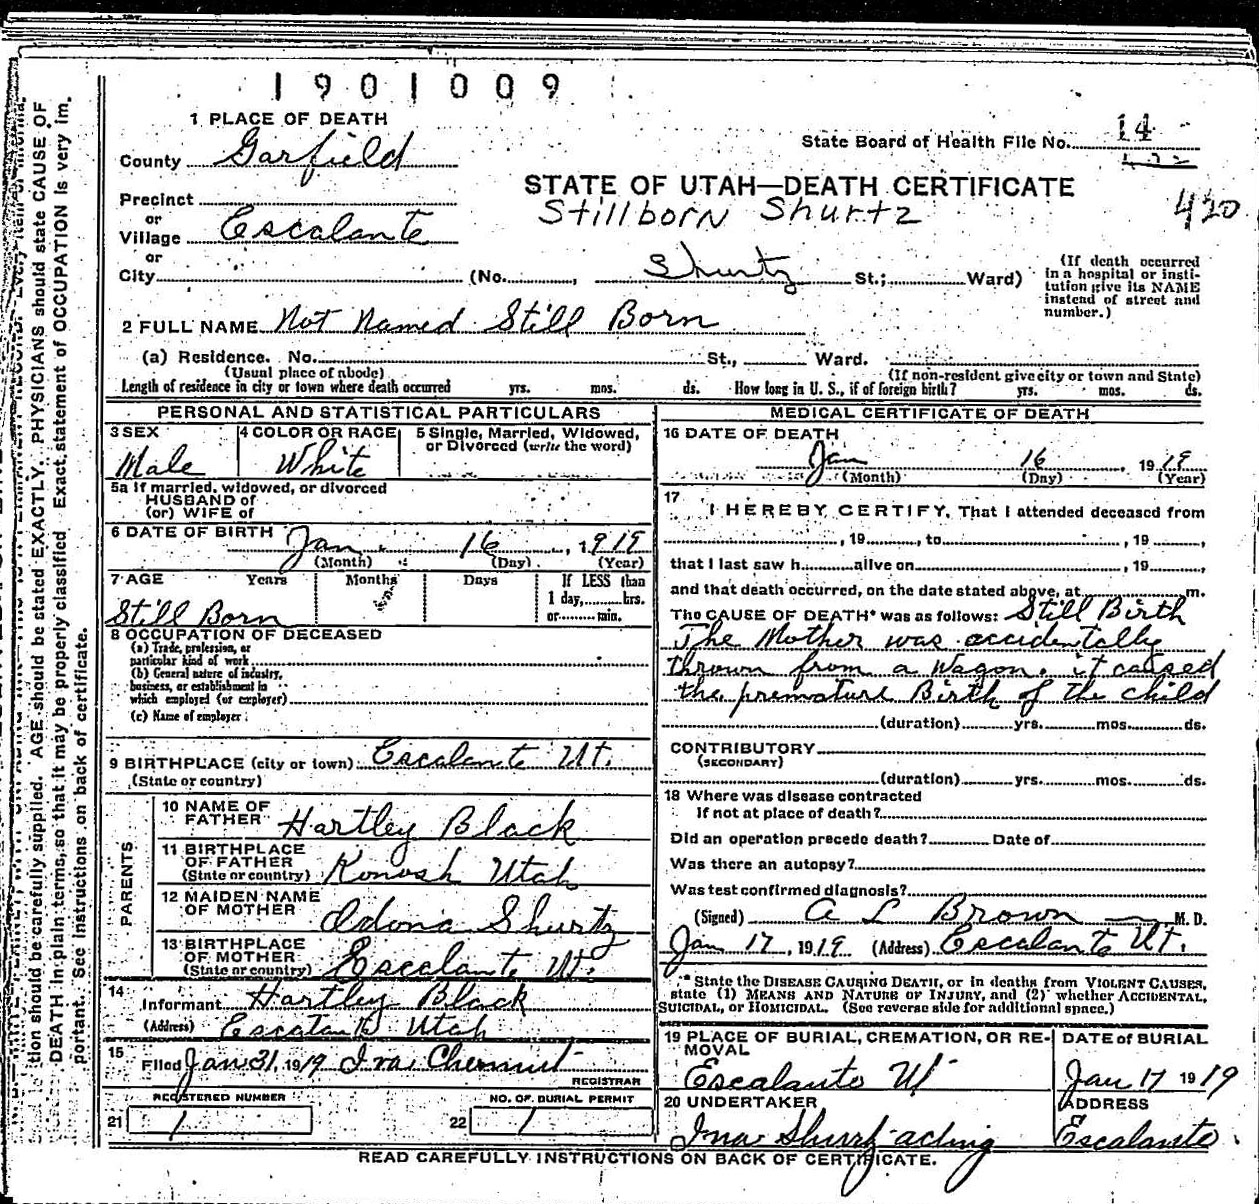 1901009
1 PLACE OF DEATH
State Board of Health File No. 14
County Garfield
STATE OF UTAH—DEATH CERTIFICATE
420
Precinct
Stillborn Shurtz
or
Village Escalante
or
City (No. , Shurtz St.; Ward)
(If death occurred
in a hospital or insti-
tution give its NAME
instead of street and
number.)
2 FULL NAME Not Named Still Born
(a) Residence. No. St., Ward.
(Usual place of abode) (If non-resident give city or town and State)
Length of residence in city or town where death occurred yrs. mos. ds. How long in U. S., if of foreign birth? yrs. mos. ds.
PERSONAL AND STATISTICAL PARTICULARS
3 SEX 4 COLOR OR RACE 5 Single, Married, Widowed,
or Divorced (write the word)
Male White
5a If married, widowed, or divorced
HUSBAND of
(or) WIFE of
6 DATE OF BIRTH Jan. 16, 1919
(Month) (Day) (Year)
7 AGE Years Months Days If LESS than
1 day, hrs.
or min.
Still Born
8 OCCUPATION OF DECEASED
(a) Trade, profession, or
particular kind of work
(b) General nature of industry,
business, or establishment in
which employed (or employer)
(c) Name of employer
9 BIRTHPLACE (city or town) Escalante Ut.
(State or country)
PARENTS
10 NAME OF
FATHER Hartley Black
11 BIRTHPLACE
OF FATHER
(State or country) Kanosh Utah
12 MAIDEN NAME
OF MOTHER Idona Shurtz
13 BIRTHPLACE
OF MOTHER
(State or country) Escalante Ut.
14
Informant Hartley Black
(Address) Escalante Utah
15
Filed Jan 31, 1919
REGISTRAR
REGISTERED NUMBER NO. OF BURIAL PERMIT
21 1 22 1
MEDICAL CERTIFICATE OF DEATH
16 DATE OF DEATH
Jan 16, 1919
(Month) (Day) (Year)
17
I HEREBY CERTIFY, That I attended deceased from
, 19 , to , 19 ,
that I last saw h alive on , 19 ,
and that death occurred, on the date stated above, at m.
The CAUSE OF DEATH* was as follows: Still Birth
The Mother was accidentally
thrown from a Wagon. it caused
the premature Birth of the child
(duration) yrs. mos. ds.
CONTRIBUTORY
(SECONDARY)
(duration) yrs. mos. ds.
18 Where was disease contracted
If not at place of death?
Did an operation precede death? Date of
Was there an autopsy?
Was test confirmed diagnosis?
(Signed) A L Brown M. D.
Jan 17, 1919 (Address) Escalante Ut.
* State the DISEASE CAUSING DEATH, or in deaths from VIOLENT CAUSES,
state (1) MEANS AND NATURE OF INJURY, and (2) whether ACCIDENTAL,
SUICIDAL, or HOMICIDAL. (See reverse side for additional space.)
19 PLACE OF BURIAL, CREMATION, OR RE-
MOVAL
DATE of BURIAL
Escalante Ut Jan 17 1919
20 UNDERTAKER ADDRESS
Ina Shurtz acting Escalante
READ CAREFULLY INSTRUCTIONS ON BACK OF CERTIFICATE.
tion should be carefully supplied. AGE should be stated EXACTLY. PHYSICIANS should state CAUSE OF
DEATH in plain terms, so that it may be properly classified. Exact statement of OCCUPATION is very im-
portant. See instructions on back of certificate.